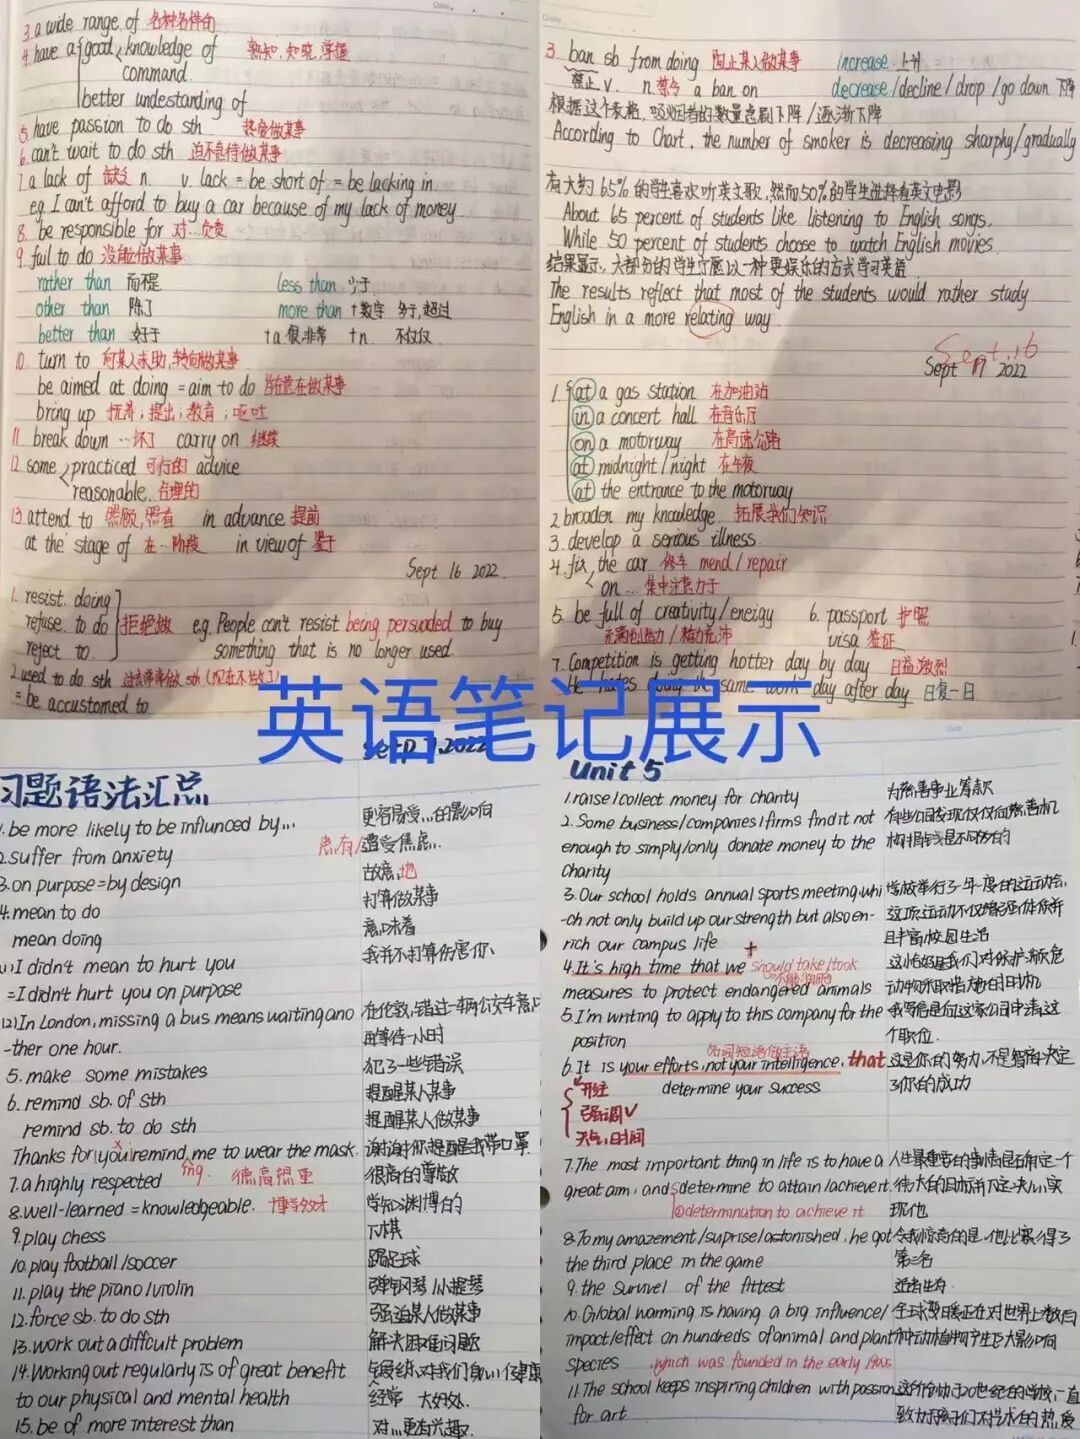 3. a wide range of 各种各样的
4. have a good knowledge of 熟知, 知晓, 掌握
command
better undestanding of
5. have passion to do sth 热爱做某事
6. can't wait to do sth 迫不急待做某事
7. a lack of 缺乏 n. v. lack = be short of = be lacking in.
eg. I can't afford to buy a car because of my lack of money.
8. be responsible for 对…负责
9. fail to do 没能做某事
rather than 而不是 less than 少于
other than 除了 more than +数字 多于,超过
better than 好于 +a.很,非常 +n. 不仅仅
10. turn to 向某人求助, 转向做某事
be aimed at doing = aim to do 旨在意在做某事
bring up 抚养; 提出; 教育; 呕吐
11. break down …坏了 carry on 继续
12. some practiced 可行的 advice
reasonable 合理的
13. attend to 照顾,照看 in advance 提前
at the stage of 在…阶段 in view of 鉴于
Sept 16 2022.
1. resist. doing
refuse. to do 拒绝做 e.g. People can't resist being persuaded to buy
reject to. something that is no longer used.
2. used to do sth 过去常常做 sth (现在不做了)
= be accustomed to
3. ban sb from doing 阻止某人做某事 increase 上升
禁止 v. n. 禁令 a ban on decrease/decline/drop/go down 下降
根据这个表格, 吸烟者的数量急剧下降/逐渐下降
According to Chart, the number of smoker is decreasing sharphy/gradually
有大约65%的学生喜欢听英文歌,然而50%的学生选择看英文电影
About 65 percent of students like listening to English songs.
While 50 percent of students choose to watch English movies.
结果显示, 大部分的学生宁愿以一种更娱乐的方式学习英语
The results reflect that most of the students would rather study
English in a more relating way.
Sept.16
Sept 17 2022
1. at a gas station 在加油站
in a concert hall 在音乐厅
on a motorway 在高速公路
at midnight/night 在午夜
at the entrance to the motorway
2. broaden my knowledge 拓展我们知识
3. develop a serious illness.
4. fix the car 修车 mend/repair
on … 集中注意力于
5. be full of creativity/eneigy 6. passport 护照
充满创造力/精力充沛 visa 签证
7. Competition is getting hotter day by day 日益激烈
He hates doing the same work day after day 日复一日
英语笔记展示
习题语法汇总
Sep 7.2022
1. be more likely to be influnced by... 更容易受...的影响
2. suffer from anxiety 患有/遭受焦虑..
3. on purpose=by design 故意地
4. mean to do 打算做某事
mean doing 意味着
(1) I didn't mean to hurt you 我并不打算伤害你
=I didn't hurt you on purpose
(2) In London, missing a bus means waiting ano 在伦敦,错过一辆公交车意
-ther one hour. 再等待一小时
5. make some mistakes 犯了一些错误
6. remind sb. of sth 提醒某人某事
remind sb. to do sth 提醒某人做某事
Thanks for you remind me to wear the mask. 谢谢你提醒我带口罩
ing
7. a highly respected 德高望重 很高的尊敬
8. well-learned = knowledgeable. 博学多才 学知渊博的
9. play chess 下棋
10. play football/soccer 踢足球
11. play the piano/violin 弹钢琴/小提琴
12. force sb. to do sth 强迫某人做某事
13. work out a difficult problem 解决困难问题
14. Working out regularly is of great benefit 锻练对我们身心健康
to our physical and mental health 经常 大好处.
15. be of more interest than 对...更有兴趣.
Unit 5
1. raise/collect money for charity 为慈善事业筹款
2. Some business/companies/firms find it not 有些公司发现仅仅向慈善机
enough to simply/only donate money to the 构捐钱是不够的
charity
3. Our school holds annual sports meeting whi 学校举行了一年一度的运动会,
-ch not only build up our strength but also en- 这项运动不仅增强体质并
rich our campus life 且丰富校园生活
4. It's high time that we should take/took 这恰好是我们对保护濒危
不能省略
measures to protect endangered animals 动物采取措施的时机
5. I'm writing to apply to this company for the 我写信是向这家公司申请这
position 个职位.
名词短语做主语
6. It is your efforts, not your intelligence, that 这是你的努力,不是智商决定
determine your success 了你的成功
强调✓
天气,时间
7. The most important thing in life is to have a 人生最重要的事情是有定一个
great aim, and determine to attain/achieve it. 伟大的目标并下定决心实
②determination to achieve it 现他
8. To my amazement/suprise/astonished, he got 令我惊奇的是,他比赛得了
the third place in the game 第三名
9. the survivel of the fittest 适者生存.
10. Global warming is having a big influence/ 全球变暖正在对世界上数百
impact/effect on hundreds of animal and plant 种动植物产生巨大影响
species
, which was founded in the early 19us
11. The school keeps inspiring children with passion 这个创办于20世纪的学校,一直
for art 致力于孩子们对艺术的热爱